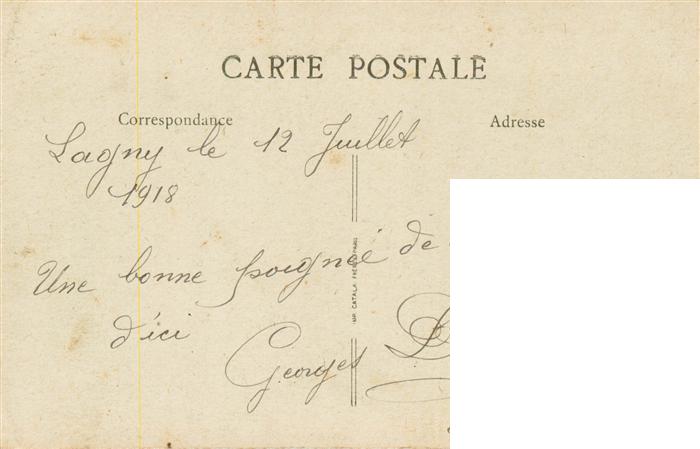 CARTE POSTALE
Correspondance
Adresse
Lagny le 12 Juillet
1918
Une bonne poignée de
d'ici
Georges
IMP. CATALA FRÈRES PARIS